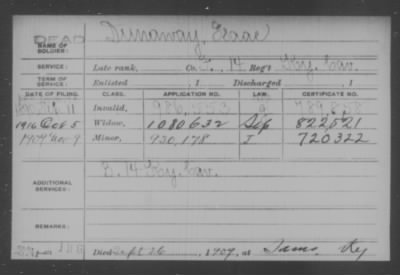 DEAD
NAME OF SOLDIER: Dunaway, Isaac
SERVICE: Late rank, Co. E, 14 Reg't Ky. Cav.
TERM OF SERVICE: Enlisted , 1 Discharged , 1
DATE OF FILING. CLASS. APPLICATION NO. LAW. CERTIFICATE NO.
Invalid,
1916 Oct 5 Widow, 1080632 822521
1909 Nov 9 Minor, 930,178 720322
ADDITIONAL SERVICES: E. 14 Ky. Cav.
REMARKS:
Died Sept 26, 1909, at Ky